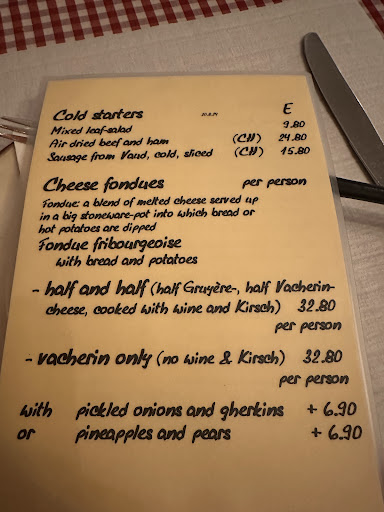 Cold starters E
Mixed leaf-salad 9.80
Air dried beef and ham (CH) 24.80
Sausage from Vaud, cold, sliced (CH) 15.80
Cheese fondues per person
Fondue: a blend of melted cheese served up
in a big stoneware-pot into which bread or
hot potatoes are dipped
Fondue fribourgeoise
with bread and potatoes
- half and half (half Gruyère-, half Vacherin-
cheese, cooked with wine and Kirsch) 32.80
per person
- vacherin only (no wine & Kirsch) 32.80
per person
with pickled onions and gherkins + 6.90
or pineapples and pears + 6.90